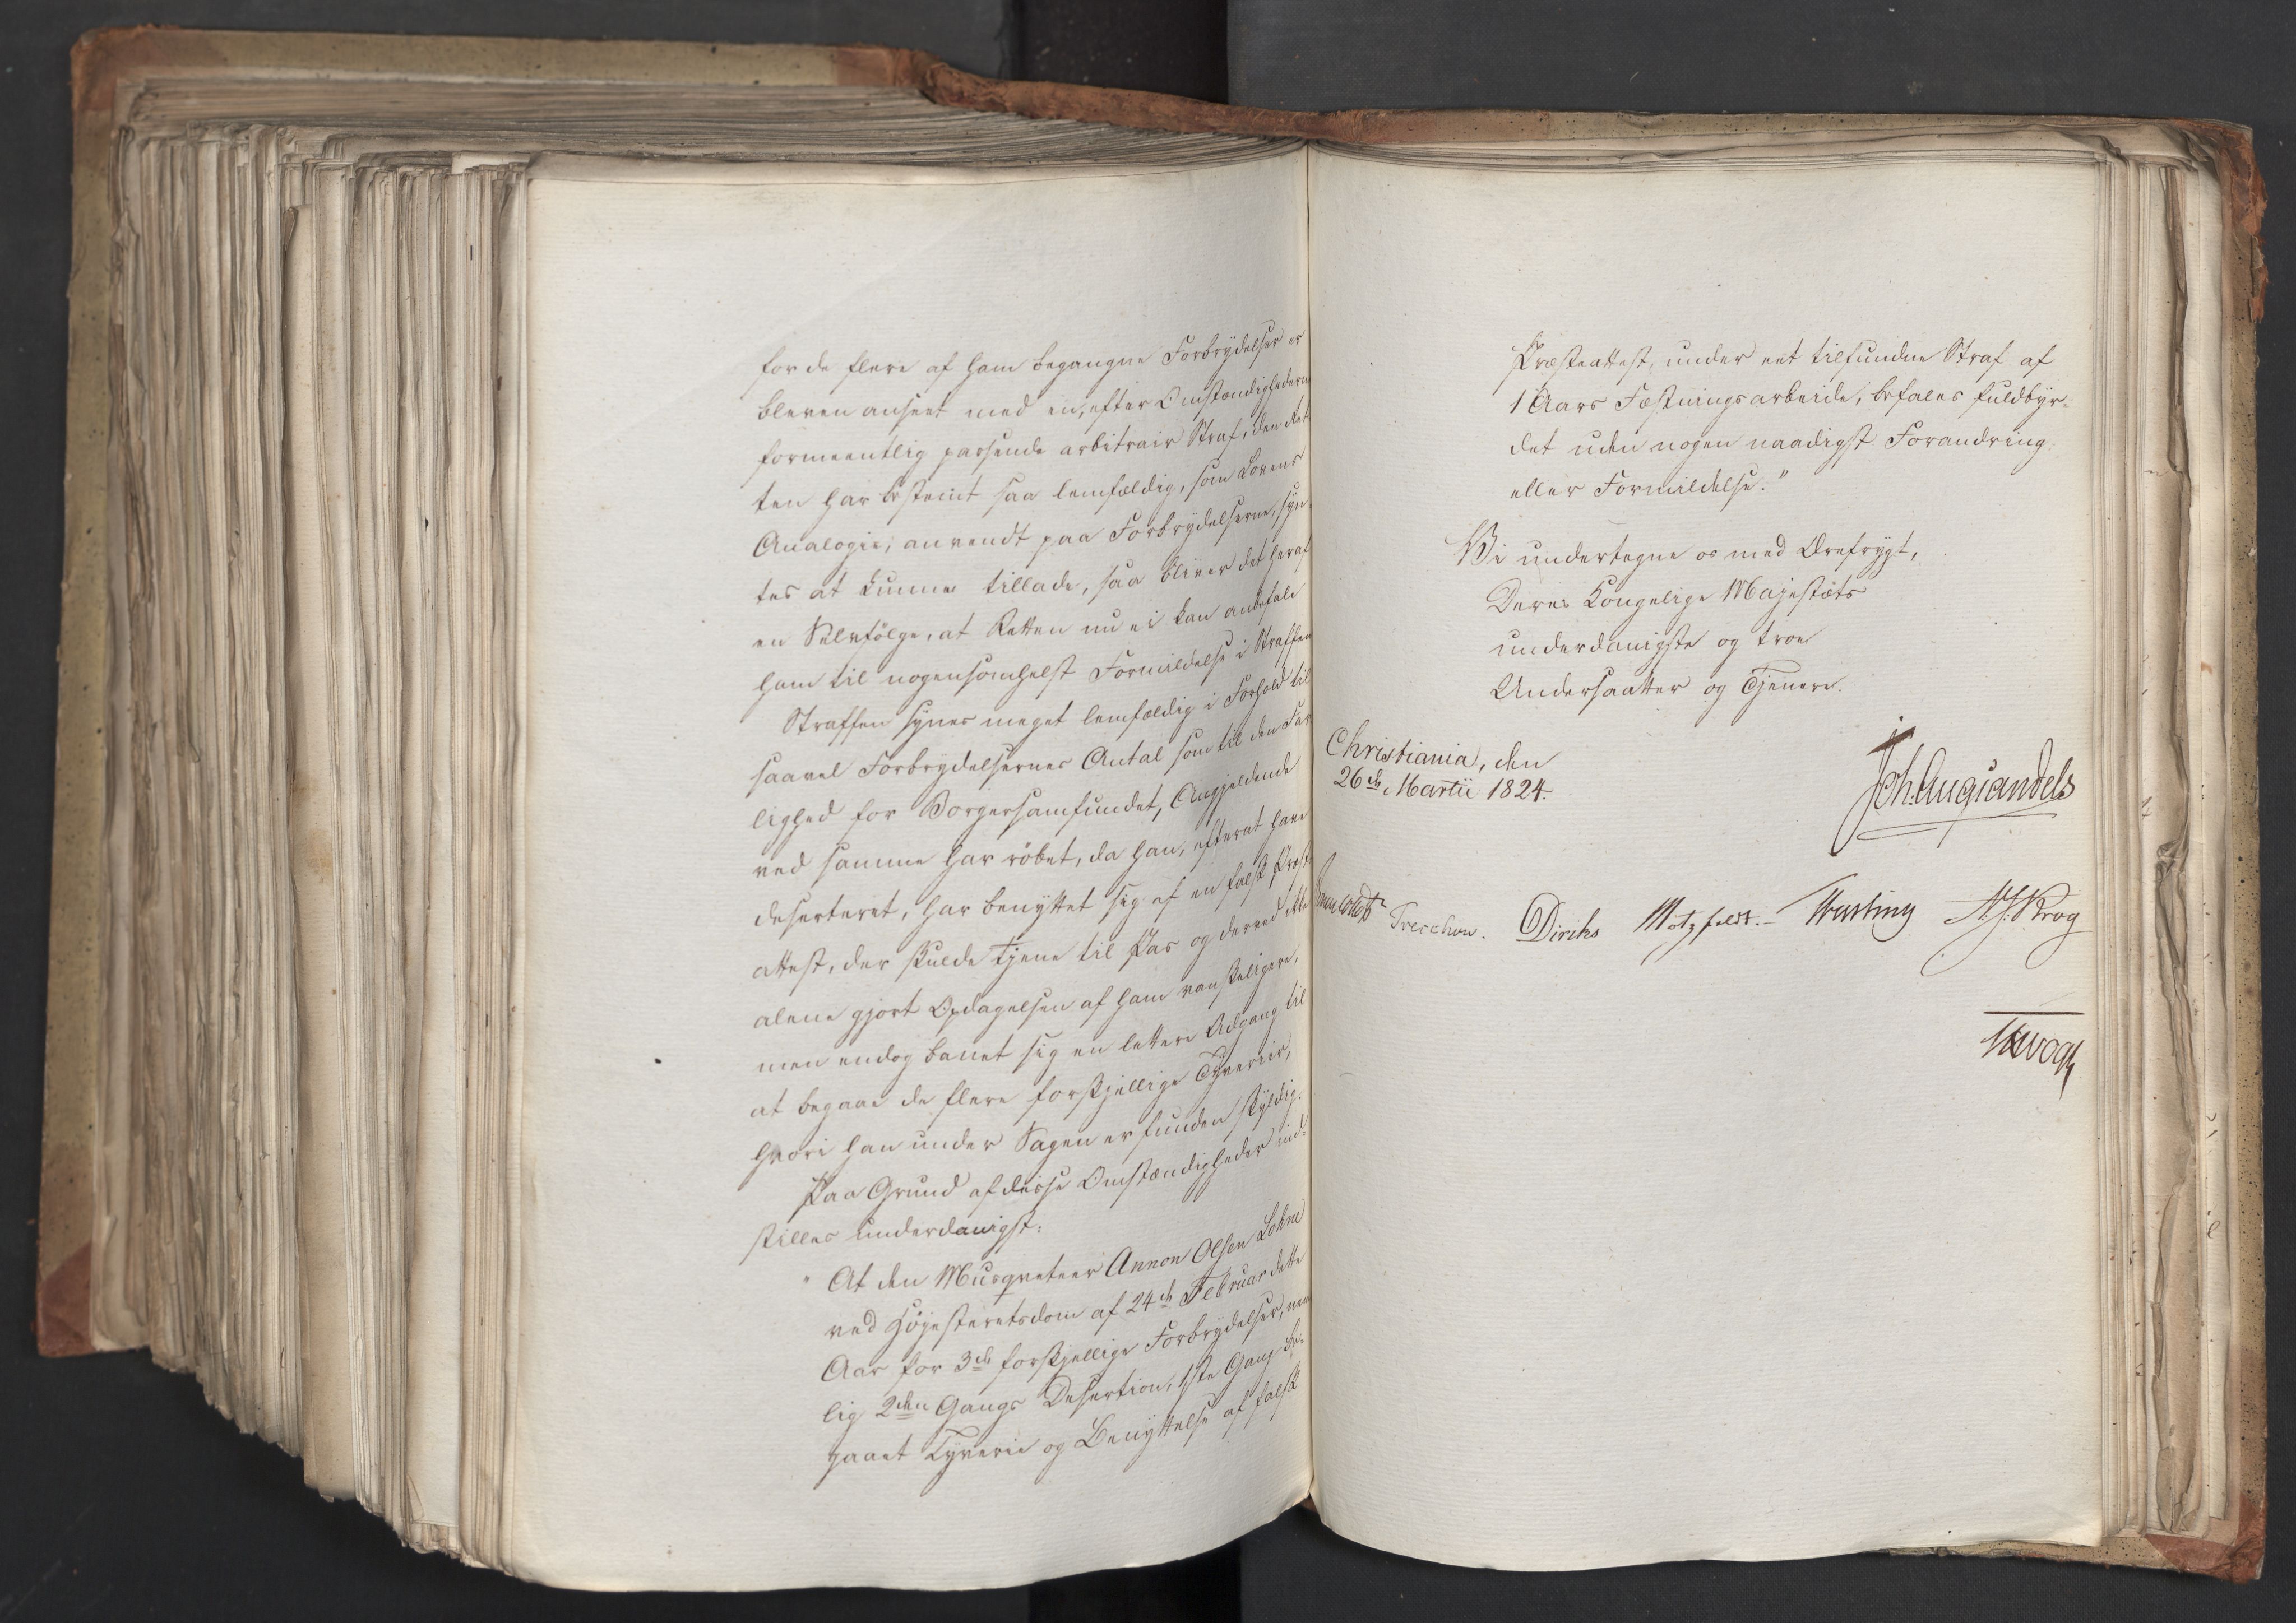 for de flere af ham begangne Forbrydelser er
bleven anseet med en, efter Omstændighederne
formeentlig passende arbitrair Straf, den Ret-
ten har bestemt saa lemfældig, som Lovens
Analogie, anvendt paa Forbrydelserne, syn-
tes at kunne tillade, saa bliver det heraf
en Selvfølge, at Retten nu ei kan anbefale
ham til nogensomhelst Formildelse i Straffen
Straffen synes meget lemfældig i Forhold til
saavel Forbrydelsernes Antal som til den Far-
lighed for Borgersamfundet, Angjeldende
ved samme har røbet, da han, efterat have
deserteret, har benyttet sig af en falsk Præst-
attest, der skulde tjene til Pas og derved ikke
alene gjort Opdagelsen af ham vanskeligere,
men endog banet sig en lettere Adgang til
at begaae de flere forskjellige Tyverier,
hvori han under Sagen er funden skyldig.
Paa Grund af disse Omstændigheder ind-
stilles underdanigst:
" At den Musqueteer Annon Olsen Lohne
ved Høiesteretsdom af 24de Februar dette
Aar for 3de forskjellige Forbrydelser, nem-
lig 2den Gangs Desertion, 1ste Gang be-
gaaet Tyverie og Benyttelse af falsk
Præsteattest, under eet tilfundne Straf af
1 Aars Fæstningsarbeide, befales fuldbyr-
det uden nogen naadigst Forandring
eller Formildelse."
Vi undertegne os med Ærefrygt,
Deres Kongelige Majestæts
underdanigste og troe
Undersaatter og Tjenere.
Christiania, den
26de Martii 1824.
Joh. Aug. Sandels
Collett Treschow. Diriks Motzfeldt. Fasting N. J. Krog
Vogt